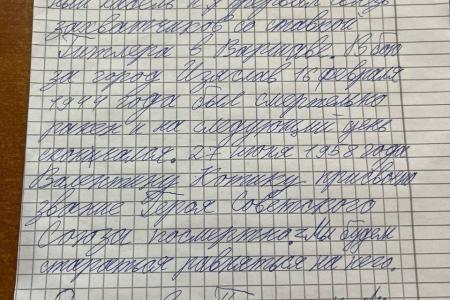 захватчиков со ставкой
Гитлера в Варшаве. В бою
за город Изяслав 16 февраля
1944 года был смертельно
ранен и на следующий день
скончался. 27 июня 1958 года
Валентину Котику присвоено
звание Героя Советского
Союза посмертно. Мы будем
стараться равняться на него.